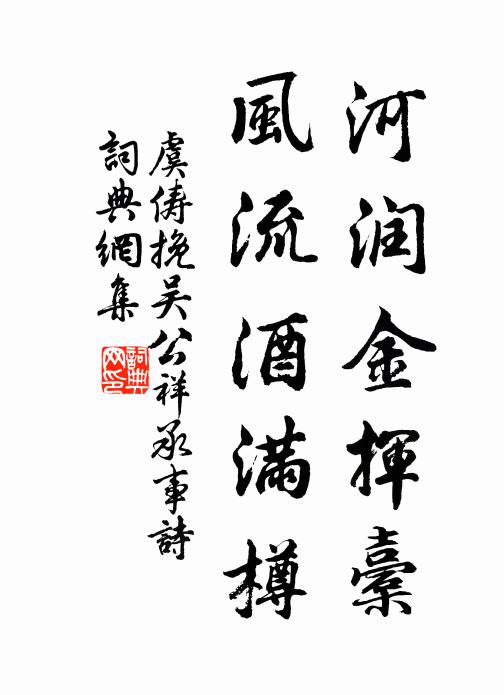 河润金揮橐
風流酒滿樽
虞儔挽吴公祥承事詩
詞典網集
詞典網印